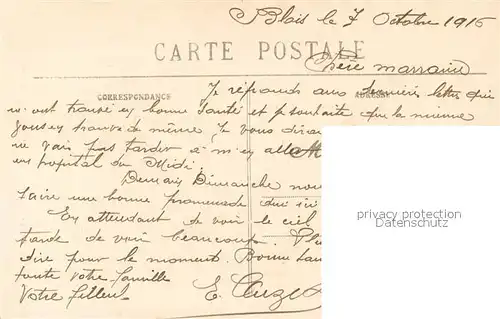 Blois le 7 Octobre 1915
CARTE POSTALE
Chère marraine
CORRESPONDANCE
ADRESSE
Je réponds aux dernières lettre qui
m'ont trouvé en bonne santé et je souhaite que la mienne
vous en trouve de même. Je vous dirai
ne vais pas tarder à m'en aller
un hopital du Midi.
Demain Dimanche nou
faire une bonne promenade
En attendant de voir le ciel
tarde de voir beaucoup.
dire pour le moment. Bonne san
toute votre famille
Votre filleul E.
privacy protection
watermark